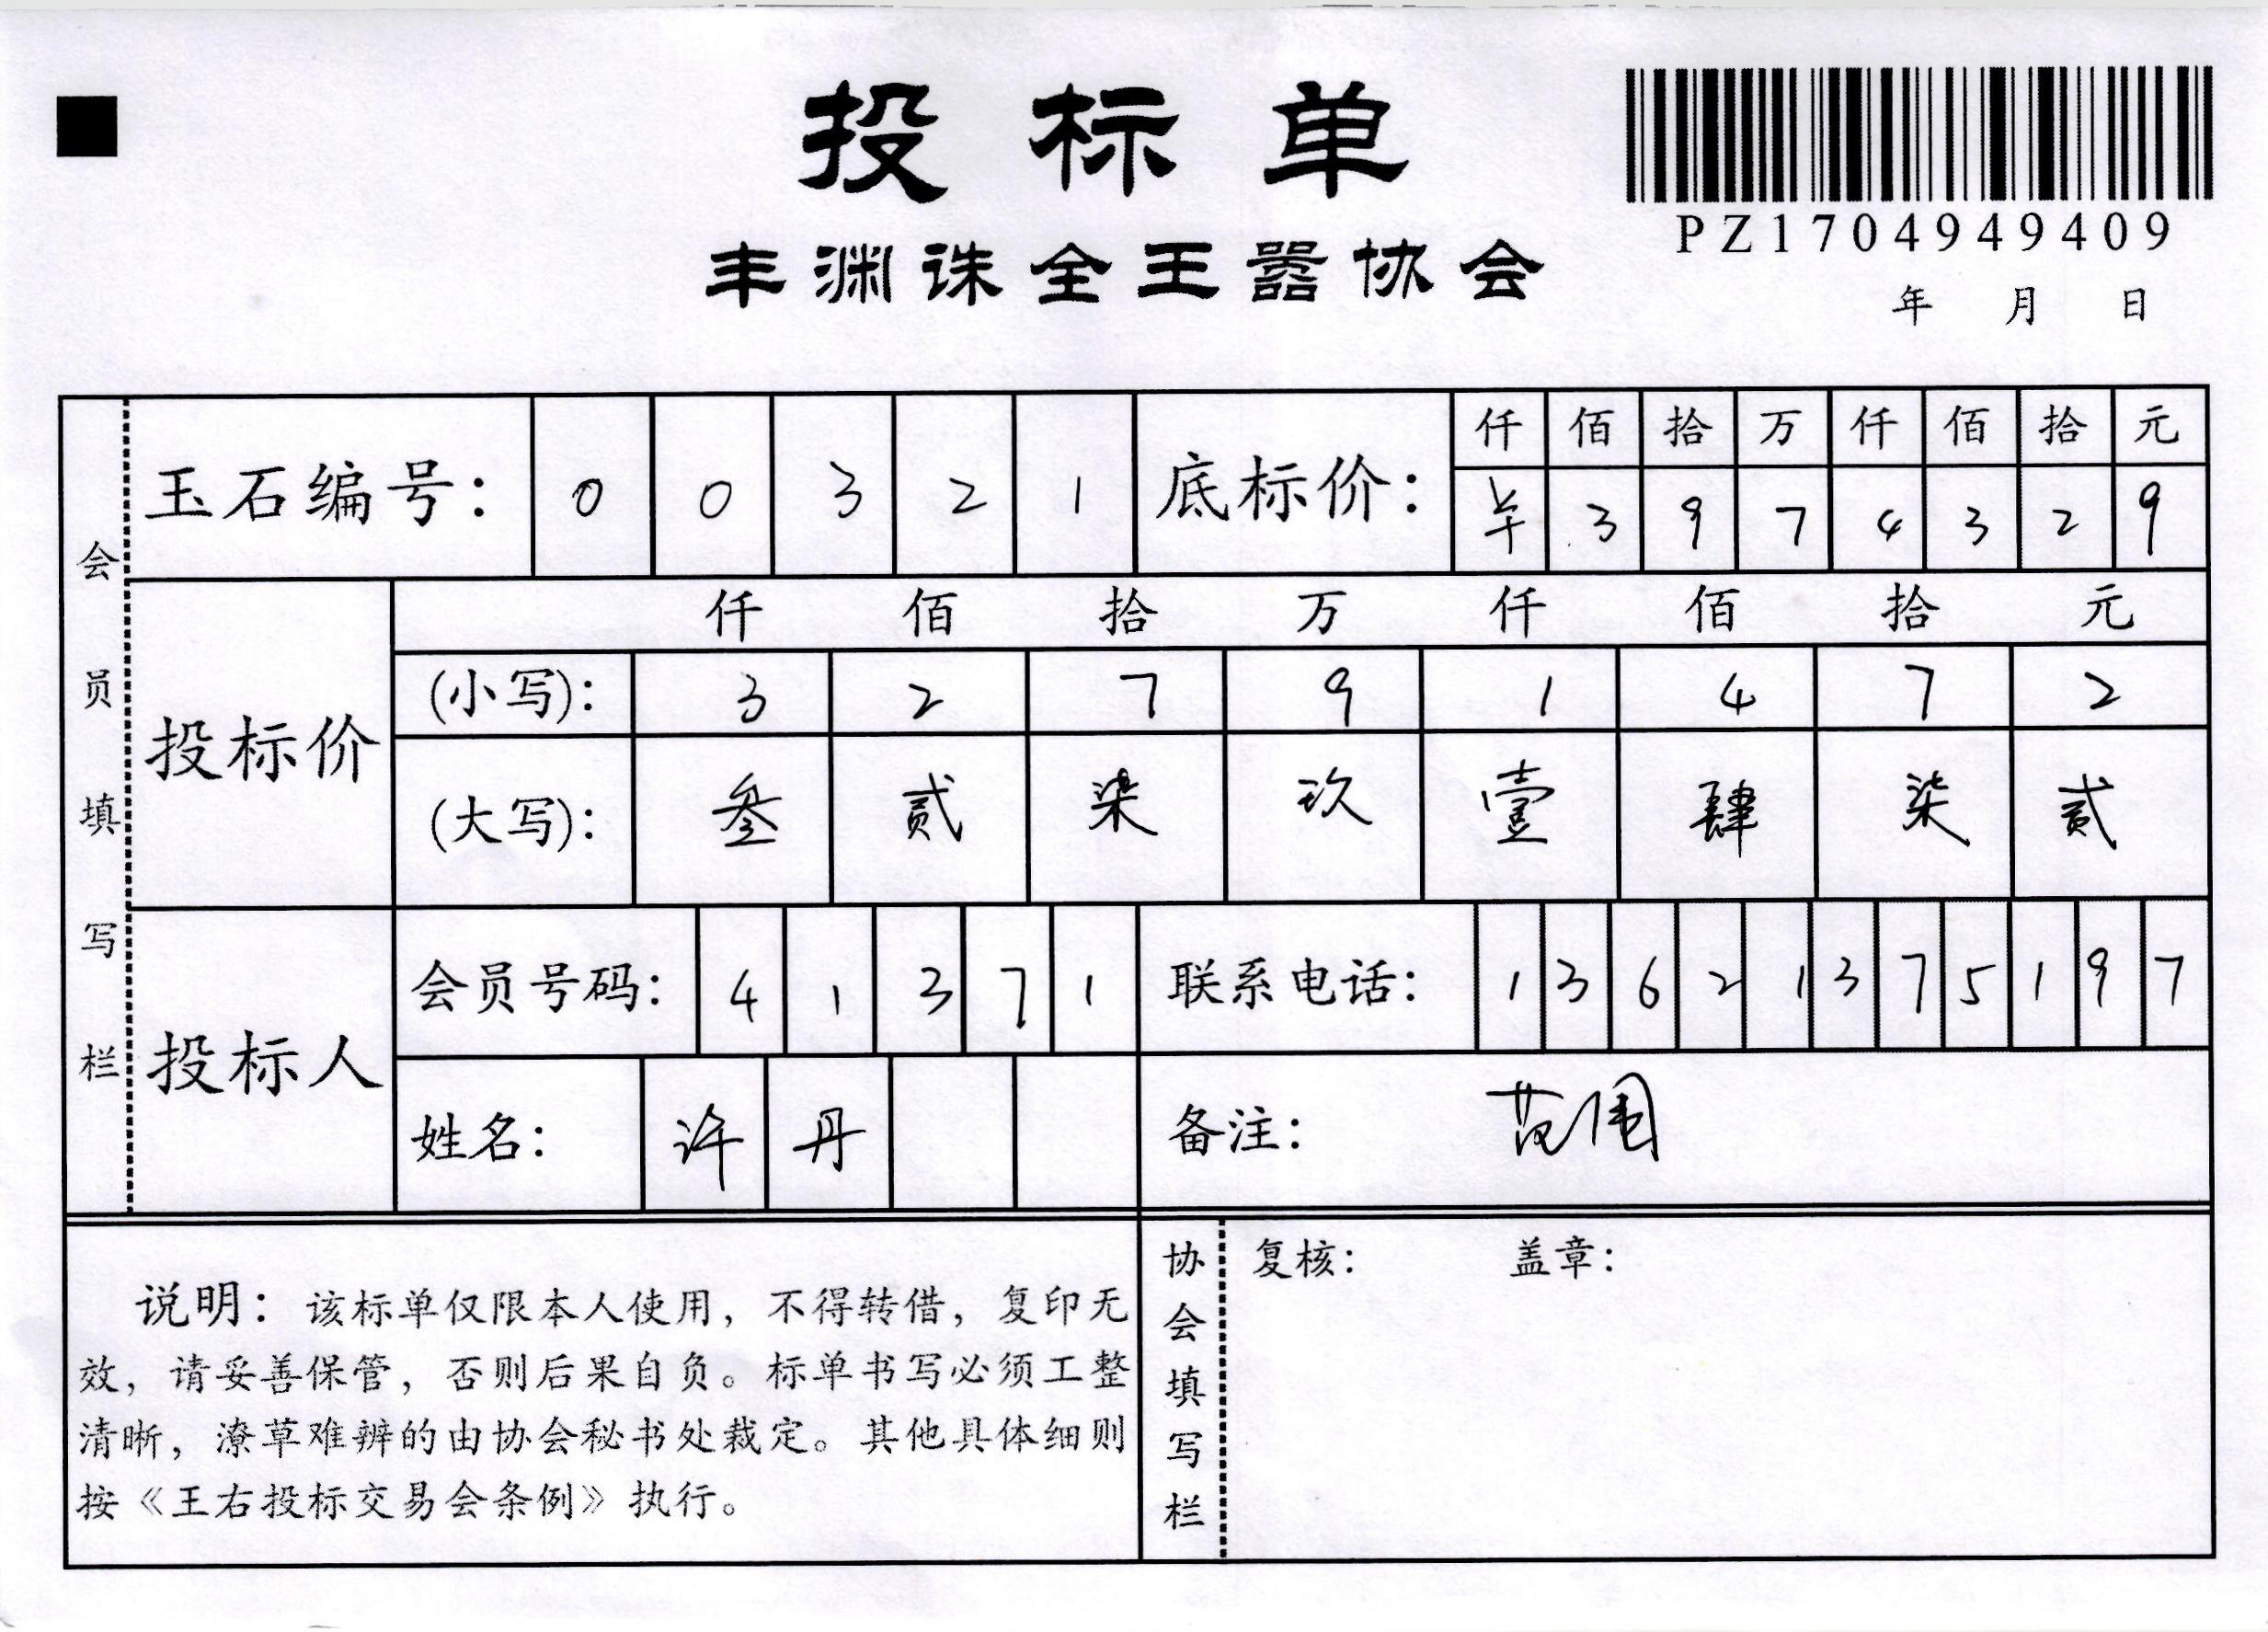 投标单
PZ1704949409
丰渊诛全王嚣协会
年 月 日
会员填写栏
玉石编号： 0 0 3 2 1 底标价：
仟 佰 拾 万 仟 佰 拾 元
¥ 3 9 7 4 3 2 9
投标价
仟 佰 拾 万 仟 佰 拾 元
(小写)： 3 2 7 9 1 4 7 2
(大写)： 叁 贰 柒 玖 壹 肆 柒 贰
投标人
会员号码： 4 1 3 7 1 联系电话： 1 3 6 2 1 3 7 5 1 9 7
姓名： 许 丹 备注： 范围
说明：该标单仅限本人使用，不得转借，复印无
效，请妥善保管，否则后果自负。标单书写必须工整
清晰，潦草难辨的由协会秘书处裁定。其他具体细则
按《王右投标交易会条例》执行。
协会填写栏
复核： 盖章：